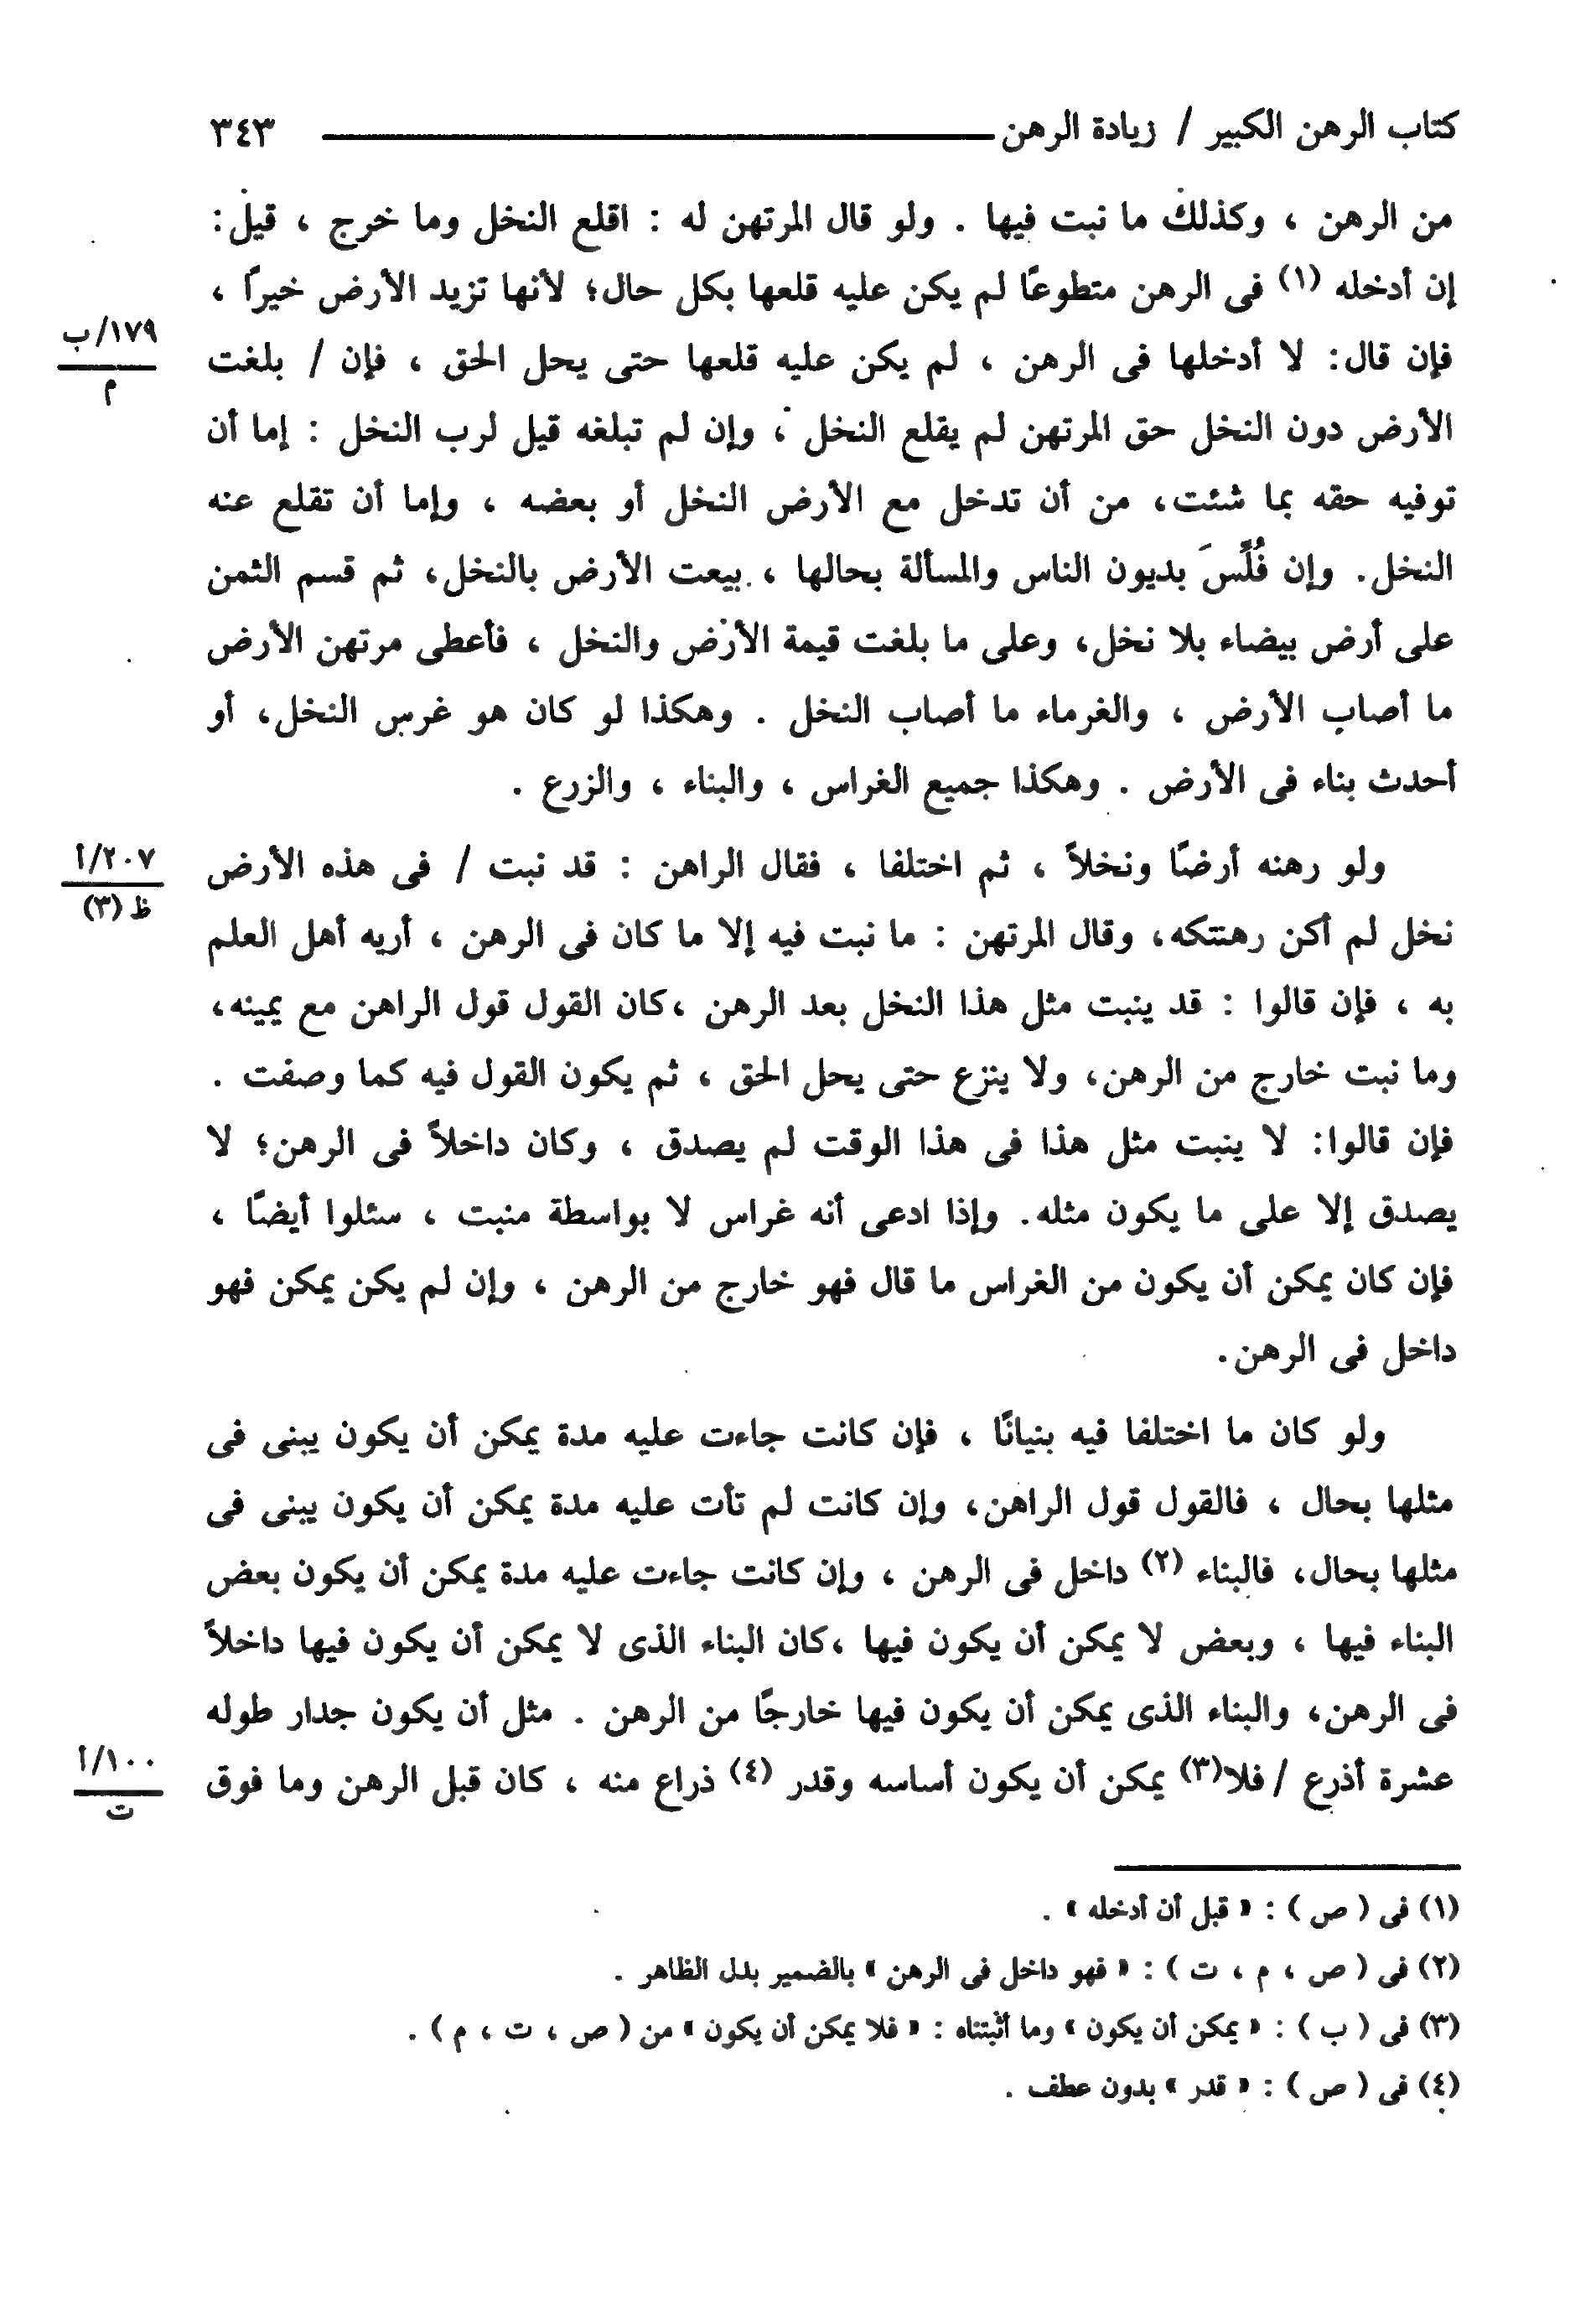 كتاب الرهن الكبير / زيادة الرهن ٣٤٣
من الرهن ، وكذلك ما نبت فيها . ولو قال المرتهن له : اقلع النخل وما خرج ، قيل :
إن أدخله (١) فى الرهن متطوعًا لم يكن عليه قلعها بكل حال؛ لأنها تزيد الأرض خيرًا ،
فإن قال: لا أدخلها فى الرهن ، لم يكن عليه قلعها حتى يحل الحق ، فإن / بلغت
١٧٩/ب
م
الأرض دون النخل حق المرتهن لم يقلع النخل ، وإن لم تبلغه قيل لرب النخل : إما أن
توفيه حقه بما شئت، من أن تدخل مع الأرض النخل أو بعضه ، وإما أن تقلع عنه
النخل. وإن فُلِّسَ بديون الناس والمسألة بحالها ، بيعت الأرض بالنخل، ثم قسم الثمن
على أرض بيضاء بلا نخل، وعلى ما بلغت قيمة الأرض والنخل ، فأعطى مرتهن الأرض
ما أصاب الأرض ، والغرماء ما أصاب النخل . وهكذا لو كان هو غرس النخل، أو
أحدث بناء فى الأرض . وهكذا جميع الغراس ، والبناء ، والزرع .
ولو رهنه أرضًا ونخلاً ، ثم اختلفا ، فقال الراهن : قد نبت / فى هذه الأرض
٢٠٧/أ
ظ (٣)
نخل لم أكن رهنتكه، وقال المرتهن : ما نبت فيه إلا ما كان فى الرهن ، أريه أهل العلم
به ، فإن قالوا : قد ينبت مثل هذا النخل بعد الرهن ،كان القول قول الراهن مع يمينه،
وما نبت خارج من الرهن، ولا ينزع حتى يحل الحق ، ثم يكون القول فيه كما وصفت .
فإن قالوا: لا ينبت مثل هذا فى هذا الوقت لم يصدق ، وكان داخلاً فى الرهن؛ لا
يصدق إلا على ما يكون مثله. وإذا ادعى أنه غراس لا بواسطة منبت ، سئلوا أيضًا ،
فإن كان يمكن أن يكون من الغراس ما قال فهو خارج من الرهن ، وإن لم يكن يمكن فهو
داخل فى الرهن.
ولو كان ما اختلفا فيه بنيانًا ، فإن كانت جاءت عليه مدة يمكن أن يكون يبنى فى
مثلها بحال ، فالقول قول الراهن، وإن كانت لم تأت عليه مدة يمكن أن يكون يبنى فى
مثلها بحال، فالبناء (٢) داخل فى الرهن ، وإن كانت جاءت عليه مدة يمكن أن يكون بعض
البناء فيها ، وبعض لا يمكن أن يكون فيها ،كان البناء الذى لا يمكن أن يكون فيها داخلاً
فى الرهن، والبناء الذى يمكن أن يكون فيها خارجًا من الرهن . مثل أن يكون جدار طوله
عشرة أذرع / فلا(٣) يمكن أن يكون أساسه وقدر (٤) ذراع منه ، كان قبل الرهن وما فوق
١٠٠/أ
ت
(١) فى ( ص ) : « قبل أن أدخله » .
(٢) فى ( ص ، م ، ت ) : « فهو داخل فى الرهن » بالضمير بدل الظاهر .
(٣) فى ( ب ) : « يمكن أن يكون » وما أثبتناه : « فلا يمكن أن يكون » من ( ص ، ت ، م ) .
(٤) فى ( ص ) : « قدر » بدون عطف .